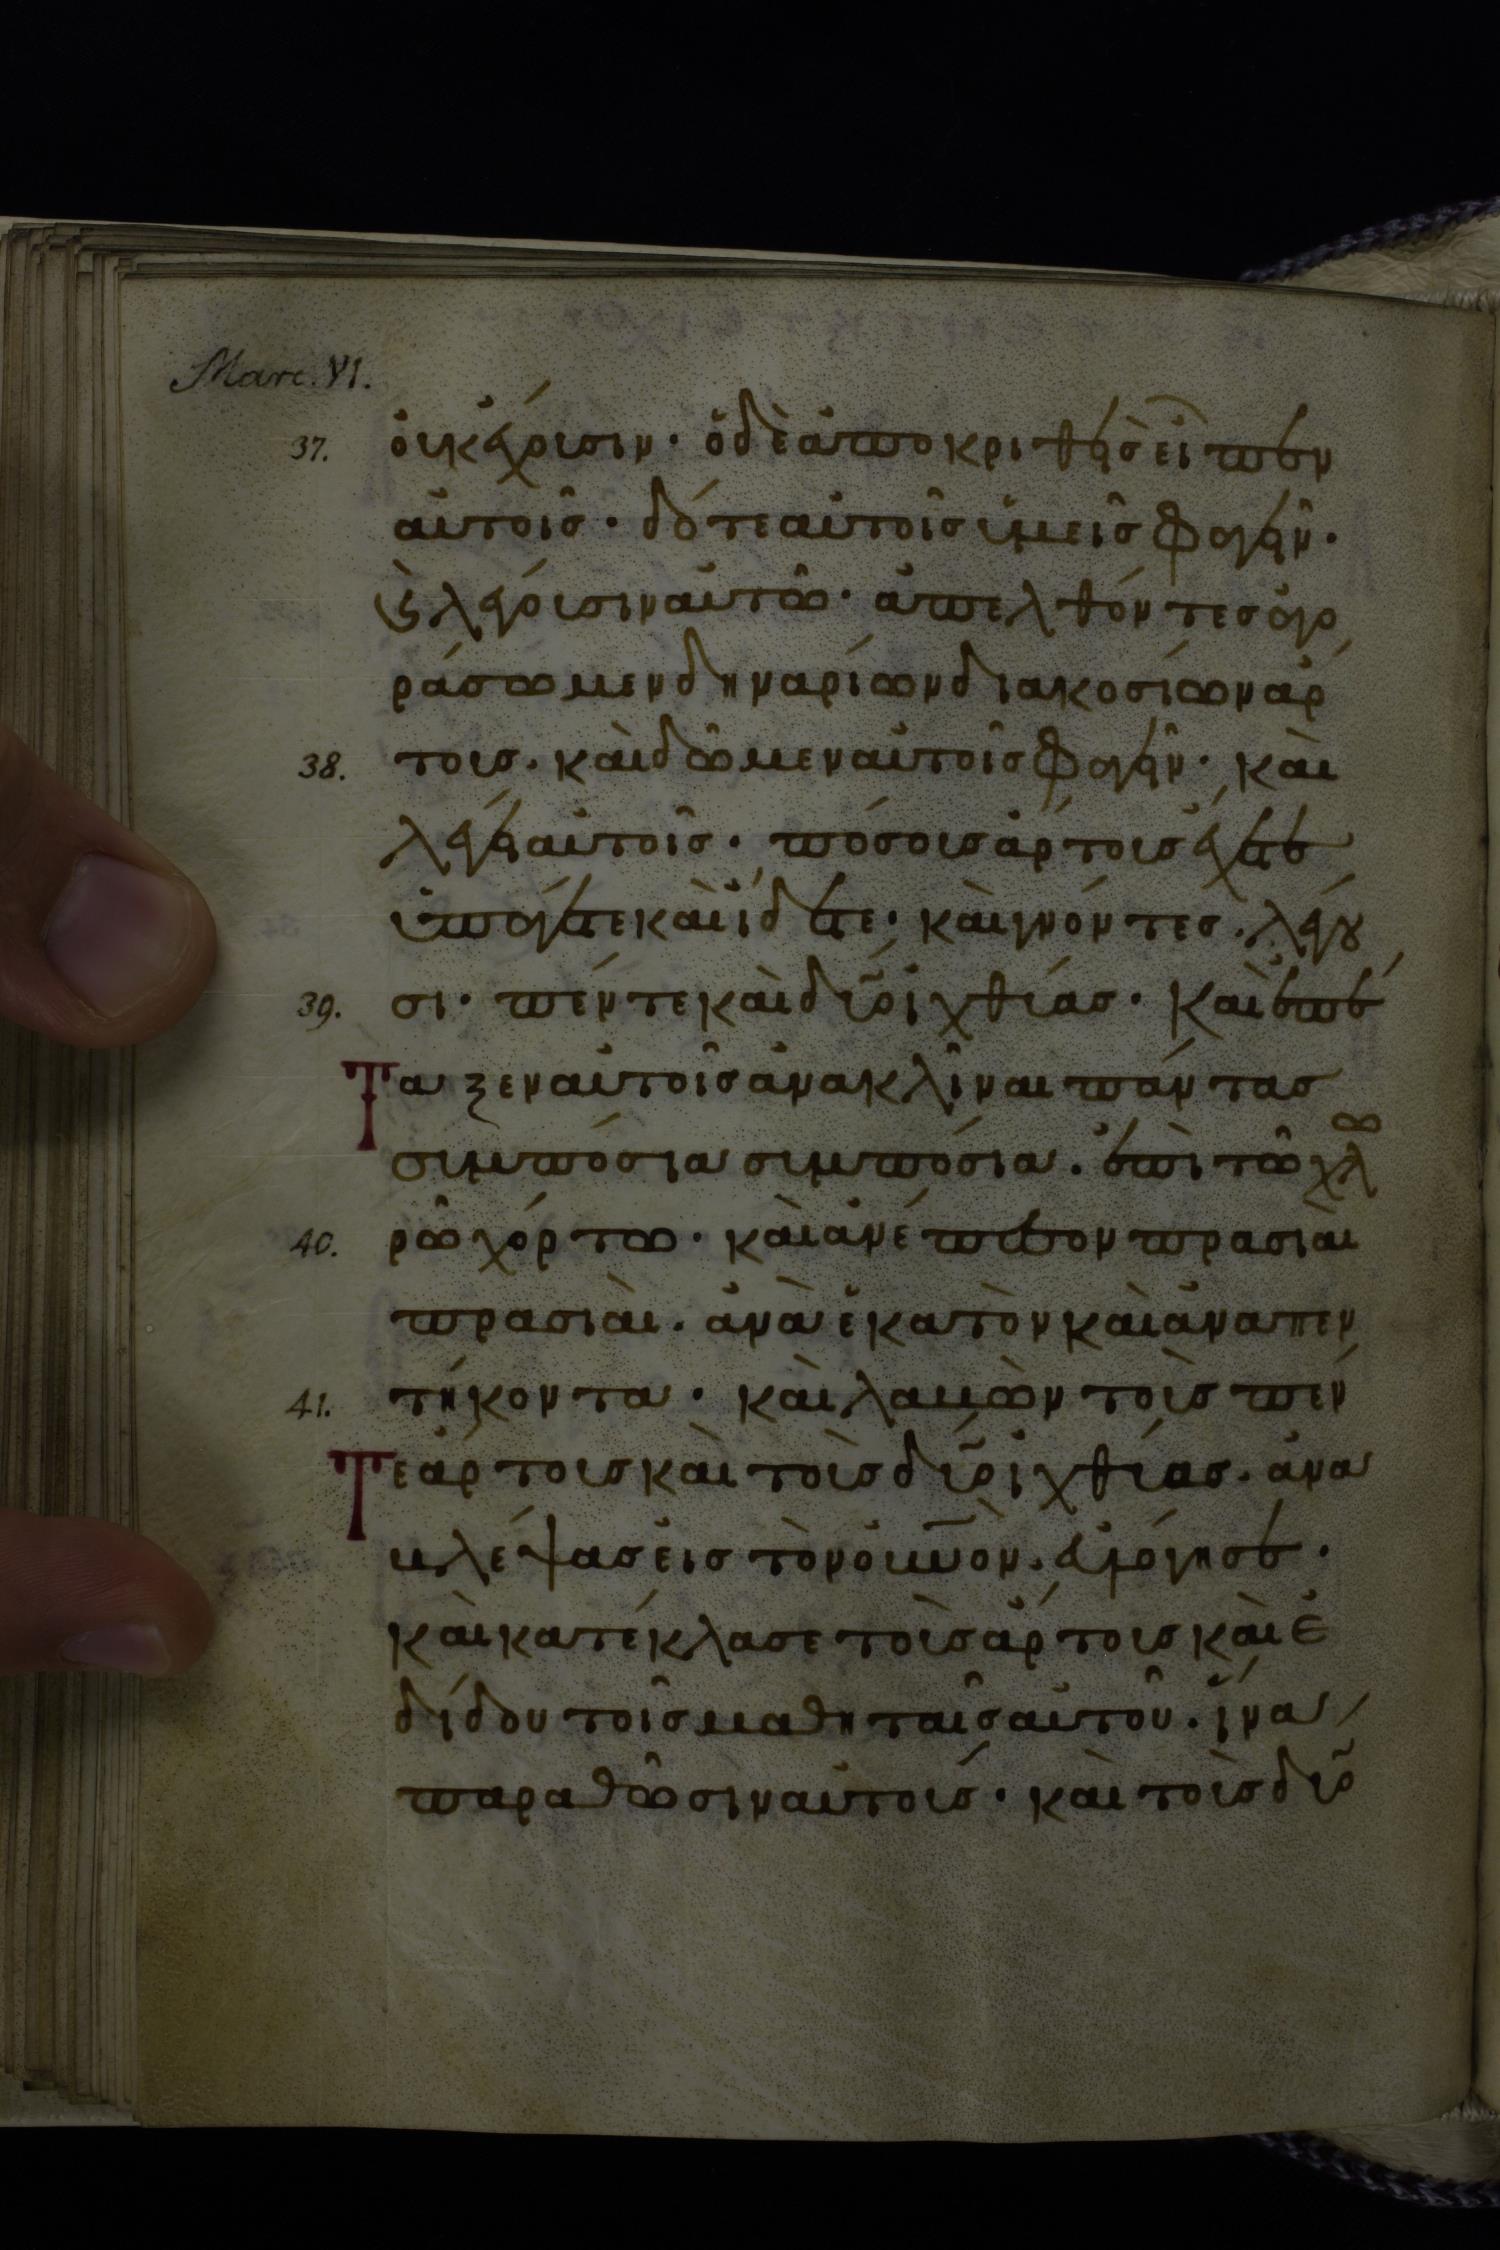 Marc. VI.
37. οὐκ ἔχουσιν· ὁ δὲ ἀποκριθεὶς εἶπεν
αὐτοῖς· δότε αὐτοῖς ὑμεῖς φαγεῖν·
καὶ λέγουσιν αὐτῶ· ἀπελθόντες ἀγο
ράσωμεν δηναρίων διακοσίων ἄρ
38. τους. καὶ δῶμεν αὐτοῖς φαγεῖν· καὶ
λέγει αὐτοῖς· πόσους ἄρτους ἔχετε
ὑπάγετε καὶ ἴδετε· καὶ γνόντες. λέγου
39. σι· πέντε καὶ δύο ἰχθύας· Καὶ ἐπέ
Ταξεν αὐτοῖς ἀνακλῖναι πάντας
συμπόσια συμπόσια. ἐπὶ τῶ χλω
40. ρῶ χόρτω· καὶ ἀνέπεσον πρασιαὶ
πρασιαὶ. ἀνὰ ἑκατὸν καὶ ἀνα πεν
41. τήκοντα· καὶ λαβὼν τοὺς πέν
Τε ἄρτους καὶ τοὺς δύο ἰχθύας. ἀνα
βλέψας εἰς τὸν οὐνὸν. εὐλόγησε·
καὶ κατέκλασε τοὺς ἄρτους καὶ ἐ
δίδου τοῖς μαθηταῖς αὐτοῦ. ἵνα
παραθῶσιν αὐτοῖς· καὶ τοὺς δύο